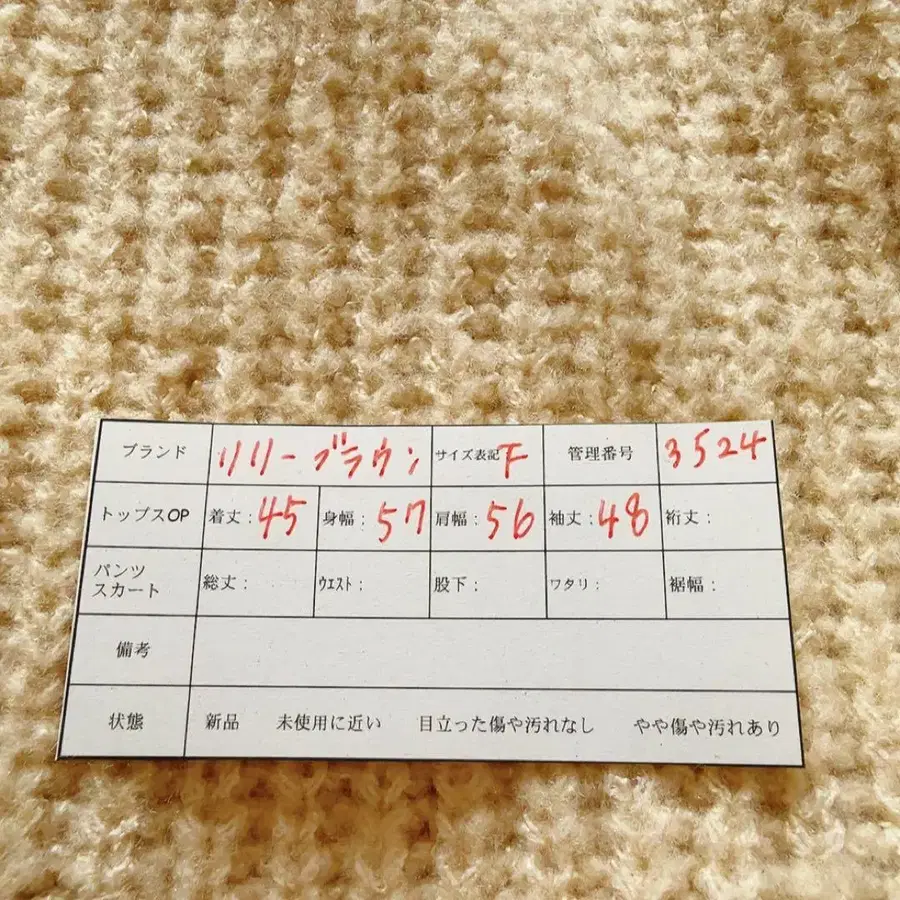 ブランド リリーブラウン サイズ表記 F 管理番号 3524
トップスOP 着丈：45 身幅：57 肩幅：56 袖丈：48 裄丈：
パンツ
スカート 総丈： ウエスト： 股下： ワタリ： 裾幅：
備考
状態 新品 未使用に近い 目立った傷や汚れなし やや傷や汚れあり